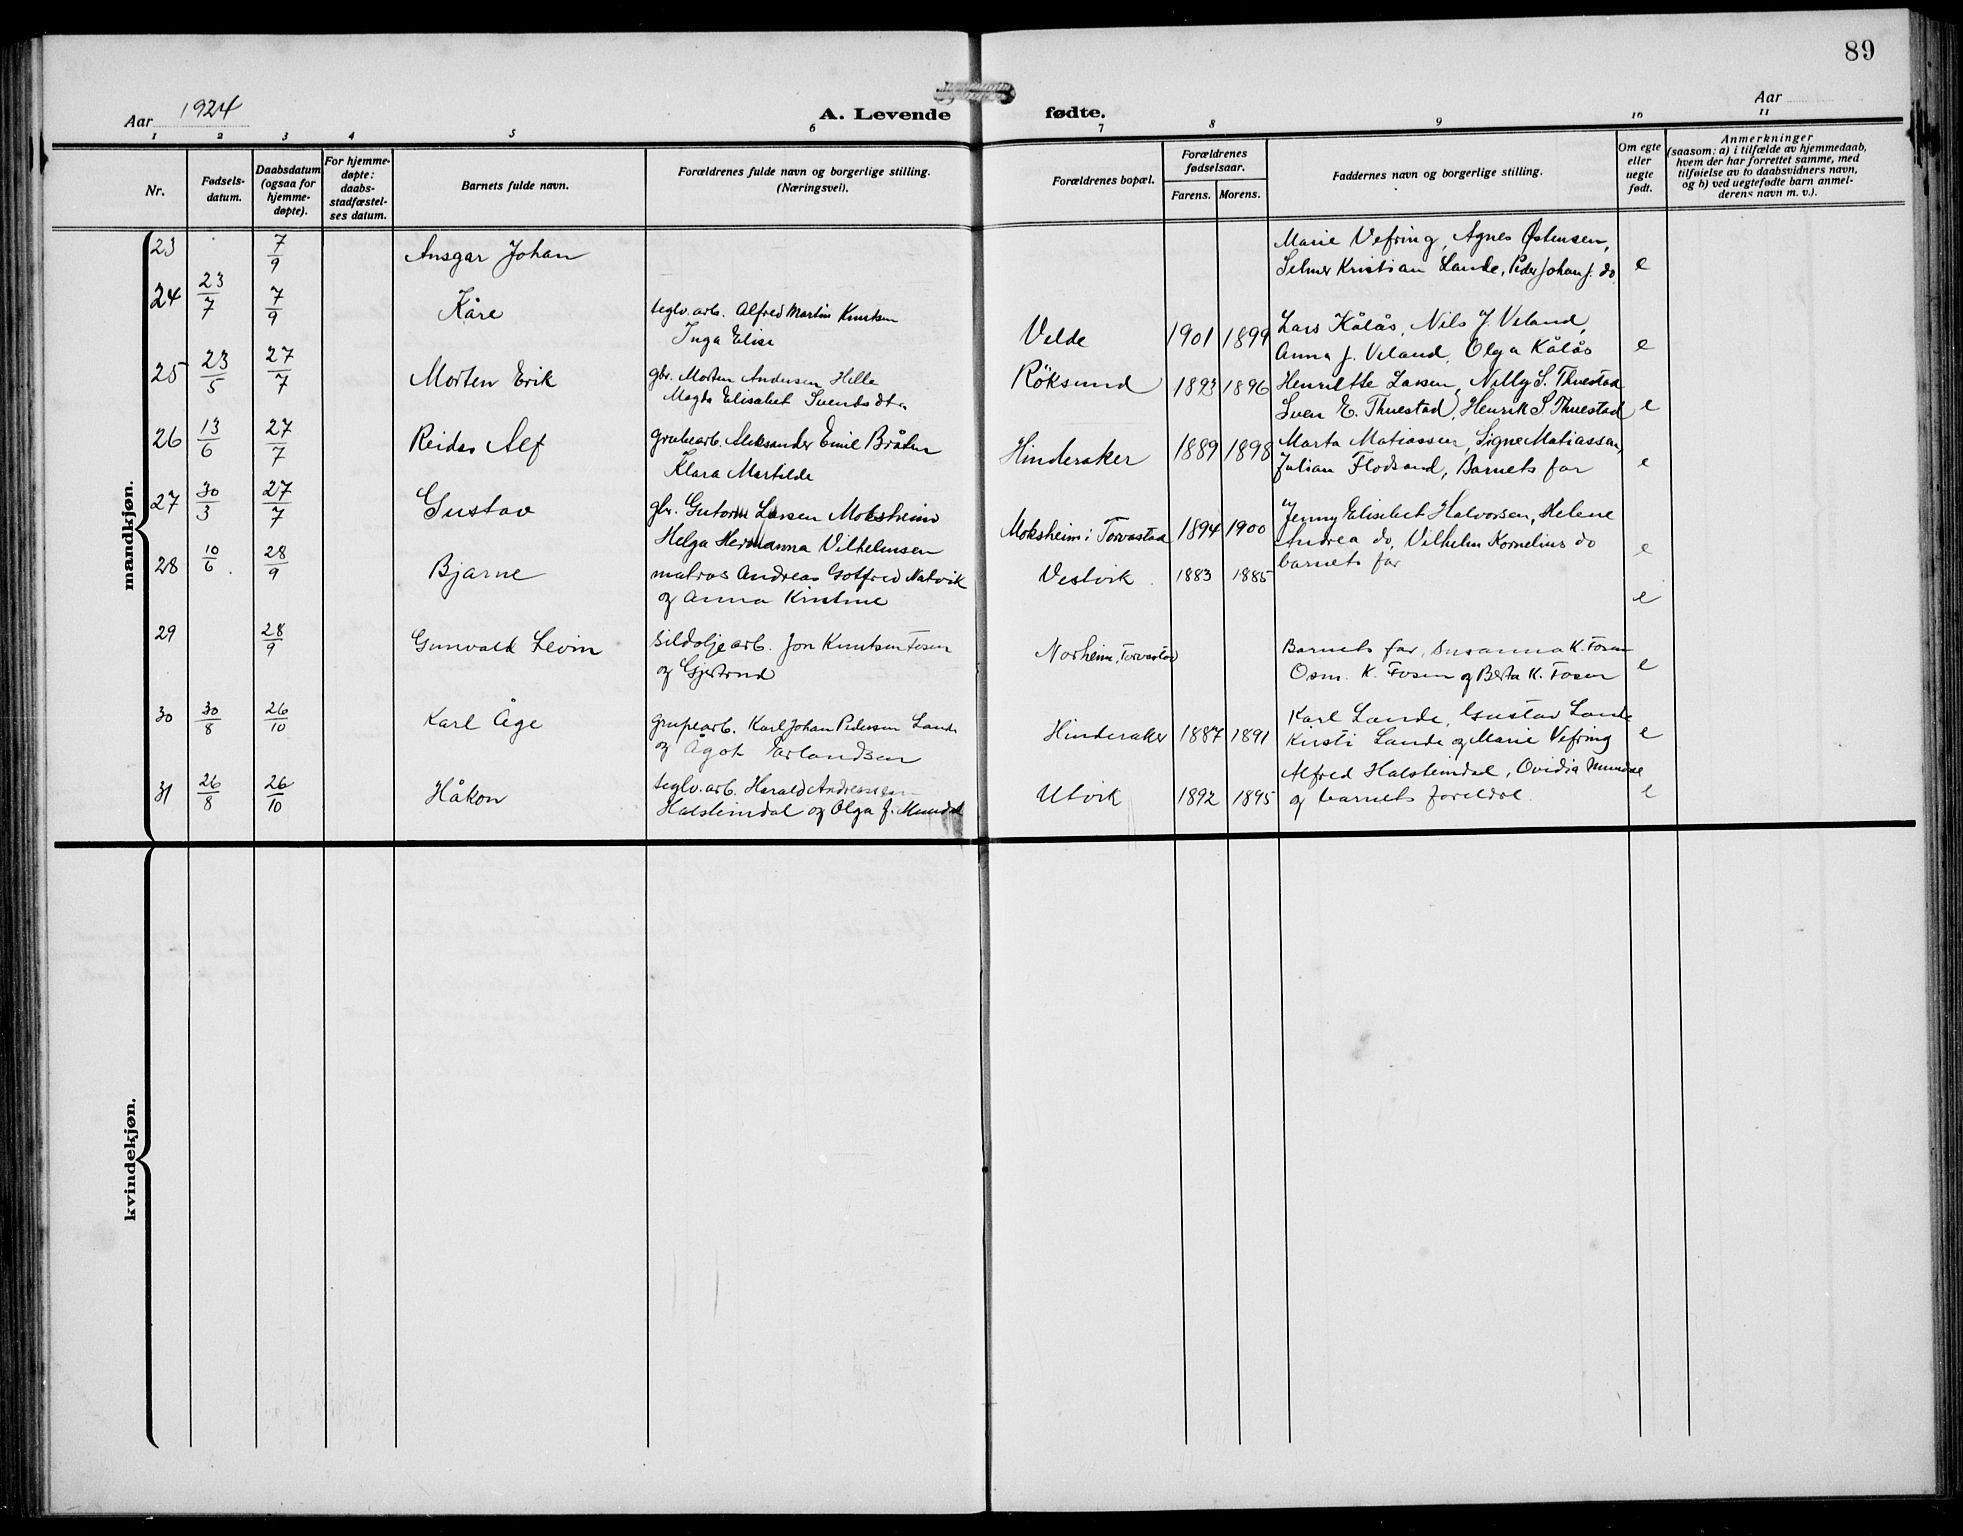 89
Aar 1924
A. Levende fødte.
Aar
1 2 3 4 5 6 7 8 9 10 11
Nr.
Fødsels-
datum.
Daabsdatum
(ogsaa for
hjemme-
døpte).
For hjemme-
døpte:
daabs-
stadfæstel-
ses datum.
Barnets fulde navn.
Forældrenes fulde navn og borgerlige stilling.
(Næringsvei).
Forældrenes bopæl.
Forældrenes
fødselsaar.
Farens. Morens.
Faddernes navn og borgerlige stilling.
Om egte
eller
uegte
født.
Anmerkninger
(saasom: a) i tilfælde av hjemmedaab,
hvem der har forrettet samme, med
tilføielse av to daabsvidners navn,
og b) ved uegtefødte barn anmel-
derens navn m. v.).
mandkjøn.
23 7/9 Ansgar Johan Marie Vefring, Agnes Østensen,
Selmer Kristian Lande, Peder Johan J. do. e
24 23/7 7/9 Kåre teglv. arb. Alfred Martin Knutsen
Inga Elise
Velde 1901 1899 Lars Kålås, Nils J. Veland,
Anna J. Veland, Olga Kålås e
25 23/5 27/7 Morten Erik gbr. Morten Andersen Helle
Magda Elisabet Svendsdtr.
Röksund 1893 1896 Henriette Larsen, Nelly S. Thuestad
Sven E. Thuestad, Henrik S. Thuestad e
26 13/6 27/7 Reidar Alf grubearb. Aleksander Emil Bråten
Klara Martilde
Hinderaker 1889 1898 Marta Matiassen, Signe Matiassen,
Julian Flodsand, Barnets far e
27 30/3 27/7 Gustav gbr. Gutorm Larsen Moksheim
Helga Hermanna Vilhelmsen
Moksheim i Torvastad 1894 1900 Jenny Elisabet Halvorsen, Helene
Andrea do, Vilhelm Kornelius do
barnets far e
28 10/6 28/9 Bjarne matros Andreas Gotfred Natvik
og Anna Kristine
Vestvik 1883 1885 e
29 28/9 Gunvald Levin sildoljearb. Jon Knutsen Fosen
og Gjertrud
Norheim, Torvastad Barnets far, Susanna K. Fosen
Osm. K. Fosen og Berta K. Fosen e
30 30/8 26/10 Karl Åge grupearb. Karl Johan Pedersen Lande
og Ågot Erlandsen
Hinderaker 1887 1891 Karl Lande, Gustav Lande
Kirsti Lande og Marie Vefring e
31 26/8 26/10 Håkon teglv. arb. Harald Andreassen
Halsteindal og Olga J. Mundal
Utvik 1892 1895 Alfred Halsteindal, Ovidia Mundal
og barnets foreldre. e
kvindekjøn.